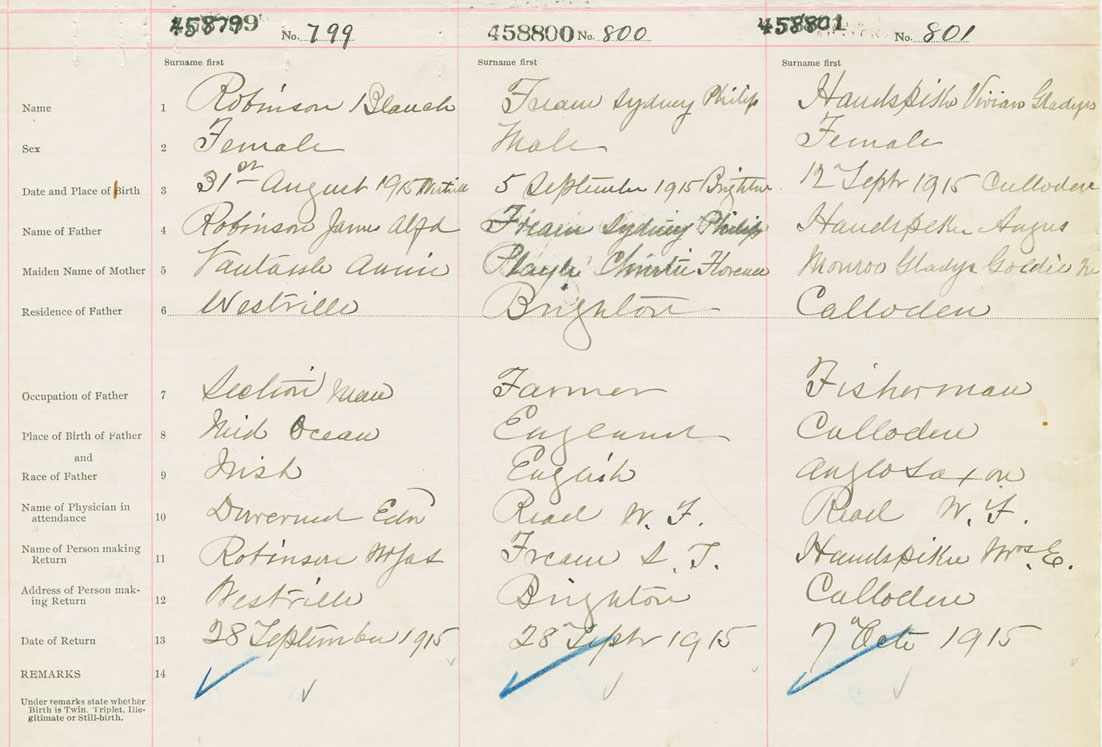 458799 No. 799 458800 No. 800 458801 No. 801
Surname first Surname first Surname first
Name 1 Robinson Blanch Fream Sydney Philip Handspiker Vivian Gladys
Sex 2 Female Male Female
Date and Place of Birth 3 31st August 1915 5 September 1915 Brighton 12th Septr 1915 Culloden
Name of Father 4 Robinson James Alfd Fream Sydney Philip Handspiker Angus
Maiden Name of Mother 5 Vantassle Annie Christie Florence Monroe Gladys Goldie
Residence of Father 6 Westville Brighton Calloden
Occupation of Father 7 Section Man Farmer Fisherman
Place of Birth of Father 8 Mid Ocean England Culloden
and
Race of Father 9 Irish English Anglo Saxon
Name of Physician in
attendance 10 Edn Read W. F. Read W. F.
Name of Person making
Return 11 Robinson Mrs Jas Fream S. Handspiker Mrs. E.
Address of Person mak-
ing Return 12 Westville Brighton Calloden
Date of Return 13 28 September 1915 28 Septr 1915 7th Octo 1915
REMARKS 14
Under remarks state whether
Birth is Twin, Triplet, Ille-
gitimate or Still-birth.